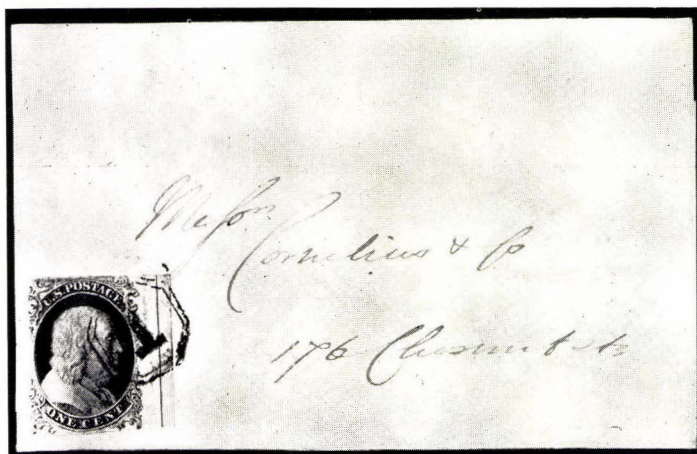 Messrs
Cornelius & Co
176 Chesnut st
U.S. POSTAGE
ONE CENT
1